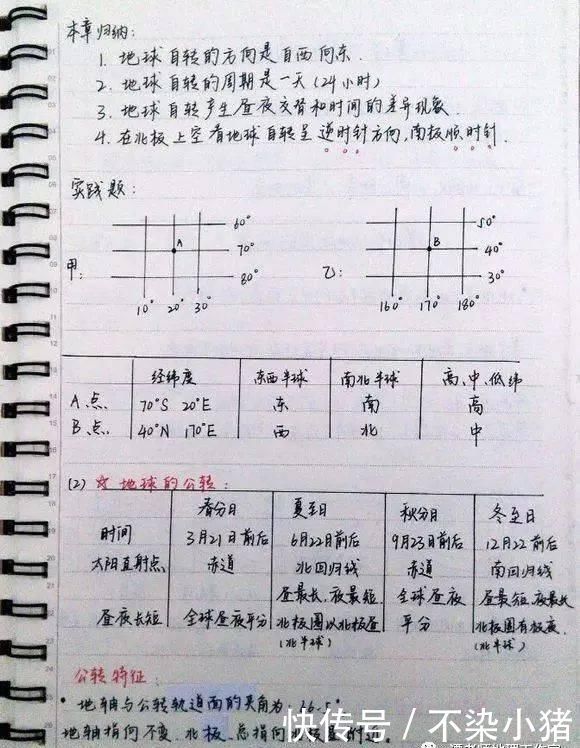 本章归纳:
1. 地球自转的方向是自西向东.
2. 地球自转的周期是一天(24小时)
3. 地球自转产生昼夜交替和时间的差异现象.
4. 在北极上空看地球自转呈逆时针方向,南极顺时针.
实践题:
甲:
A
60°
70°
80°
10° 20° 30°
乙:
B
50°
40°
30°
160° 170° 180°
经纬度 东西半球 南北半球 高、中、低纬
A点 70°S 20°E 东 南 高
B点 40°N 170°E 西 北 中
(2) ☆ 地球的公转:
春分日 夏至日 秋分日 冬至日
时间 3月21日前后 6月22日前后 9月23日前后 12月22前后
太阳直射点 赤道 北回归线 赤道 南回归线
昼最长,夜最短 全球昼夜 昼最短,夜最长
昼夜长短 全球昼夜平分 北极圈以北极昼 平分 北极圈有极夜.
(北半球) (北半球)
公转特征:
• 地轴与公转轨道面的夹角为:
地轴指向不变,北极总指向
快传号 / 不染小猪